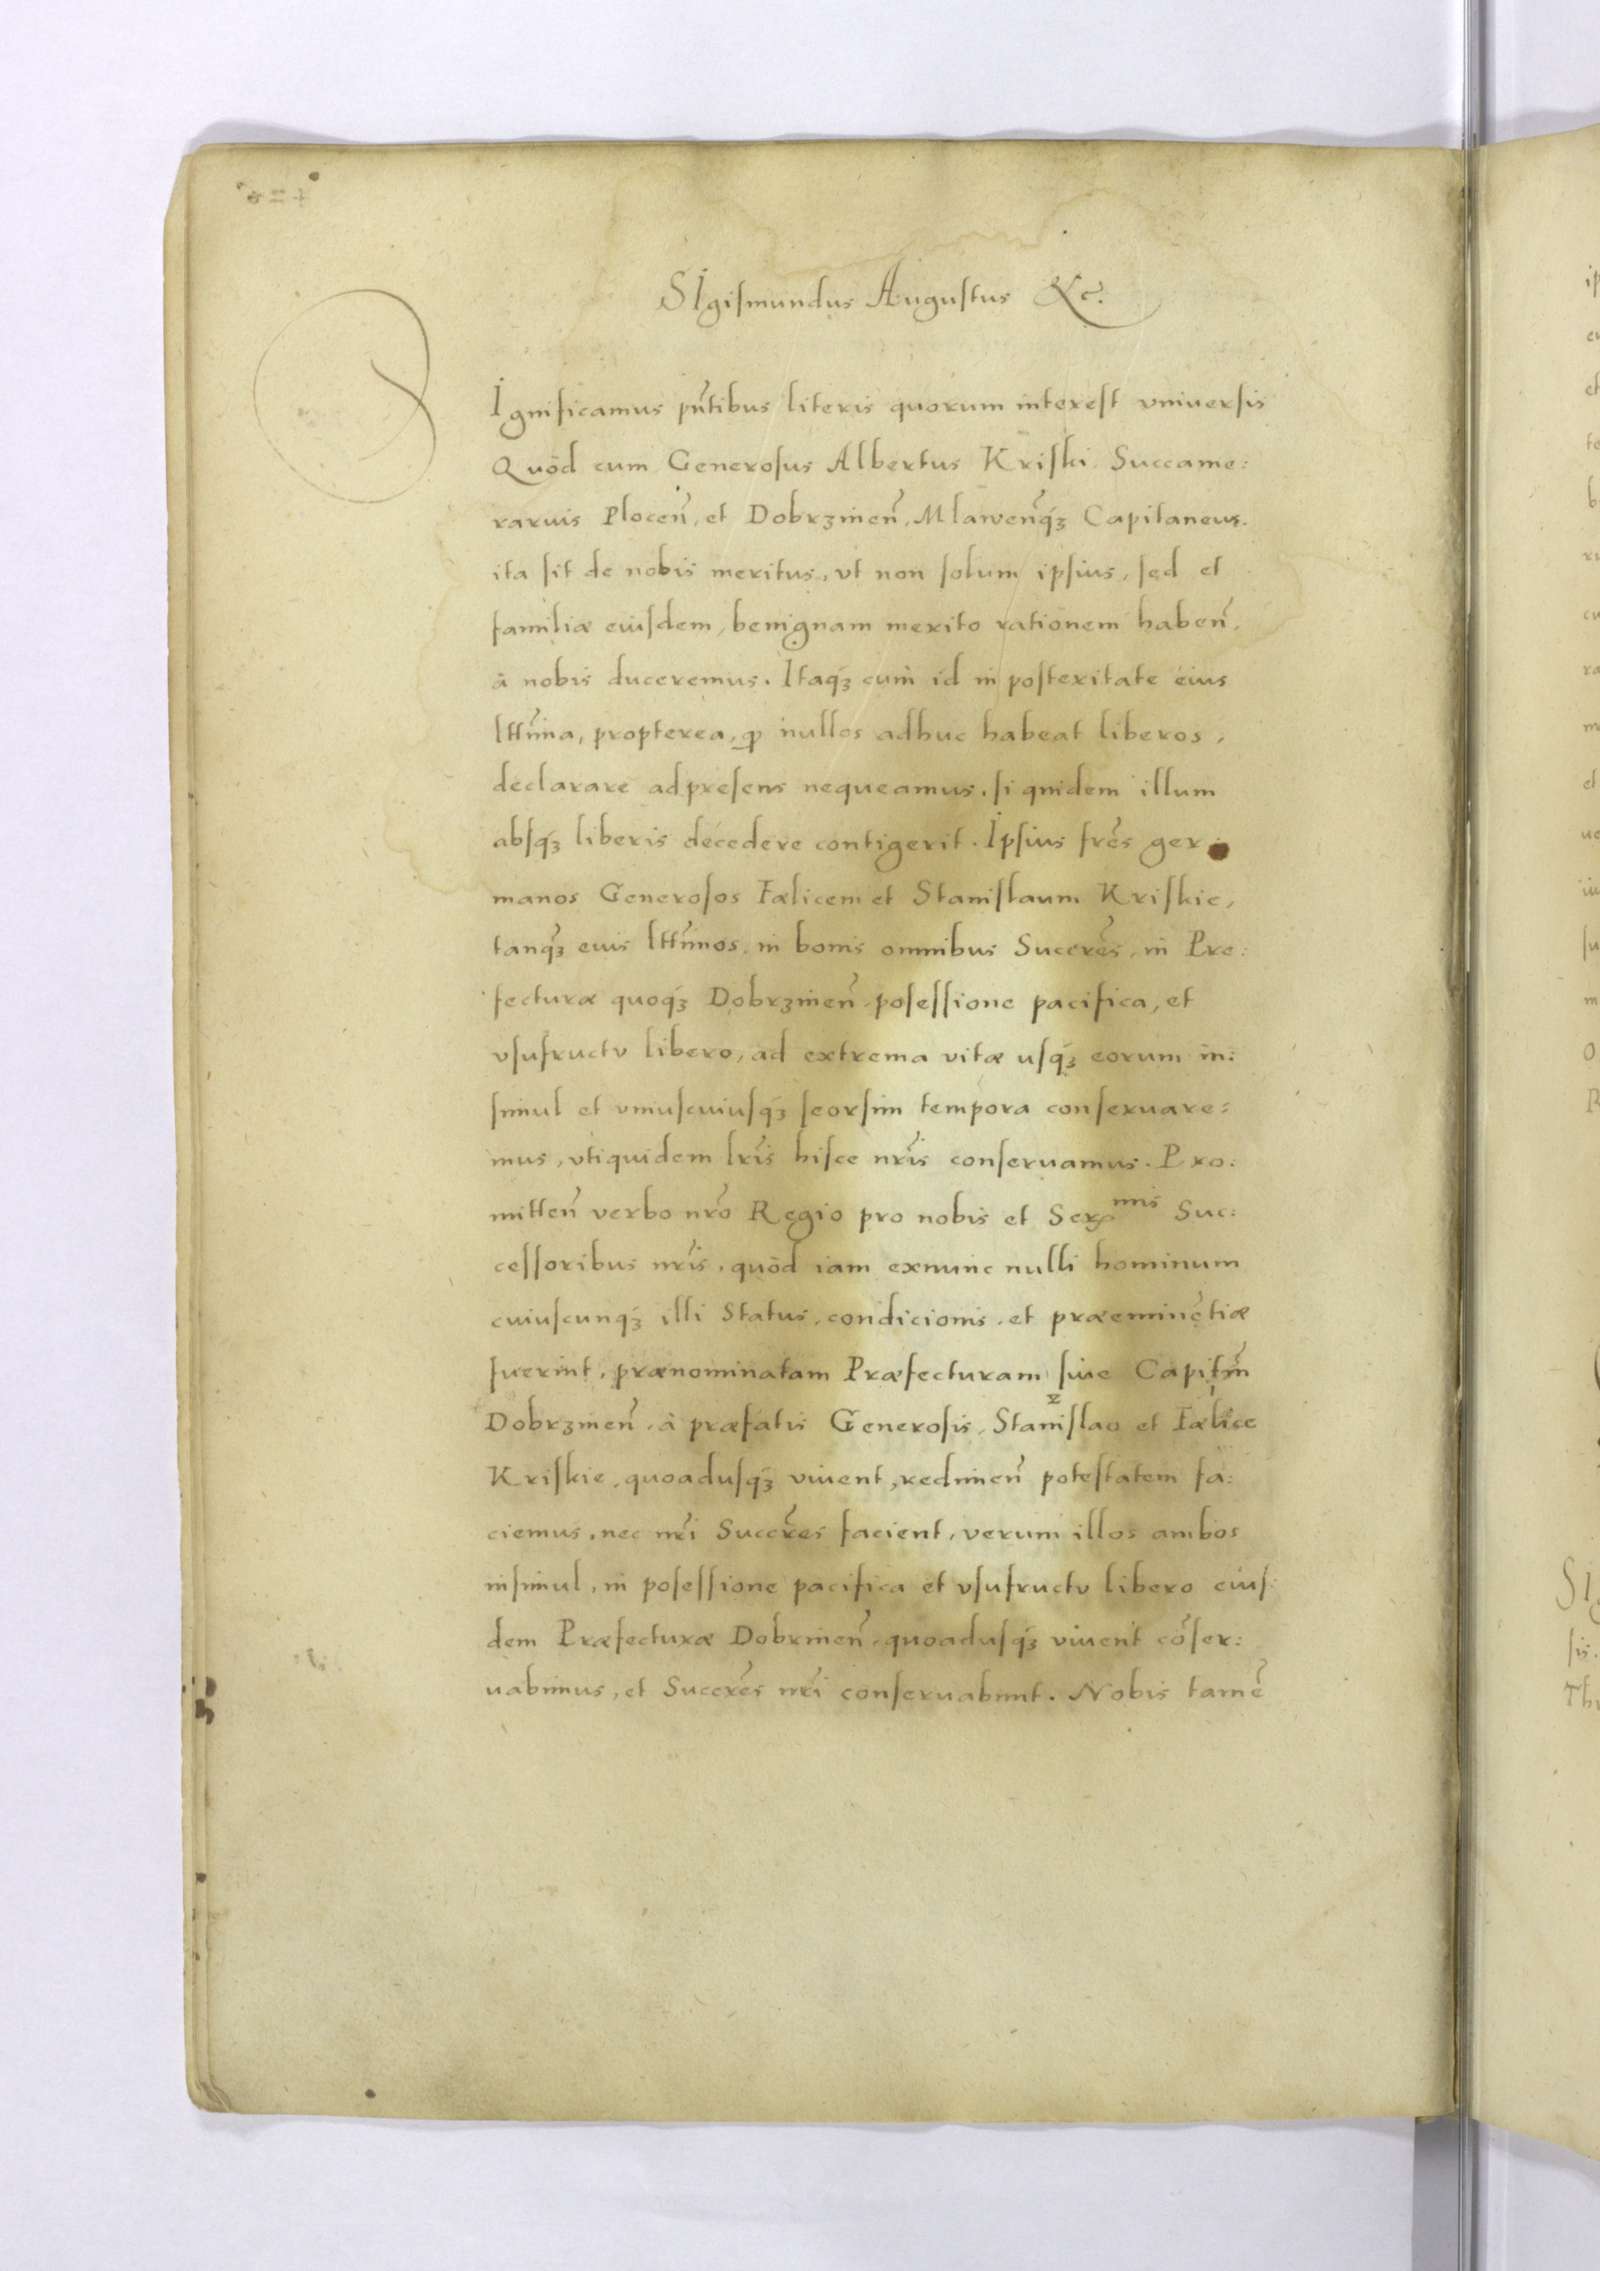 SIgismundus Augustus &c.
SIgnificamus pñtibus literis quorum interest vniuersis
Quòd cum Generosus Albertus Kriski Succame:
rarius Plocen̄, et Dobrzinen̄, Mlawen̄q́ꝫ Capitaneus.
ita sit de nobis meritus, vt non solum ipsius, sed et
familiæ eiusdem, benignam merito rationem haben̄,
à nobis duceremus. Itaq́ꝫ cum id in posteritate eius
ltt̄ima, propterea, ꝙ nullos adhuc habeat liberos,
declarare ad presens nequeamus. si quidem illum
absq́ꝫ liberis decedere contigerit. Ipsius fr̄es ger
manos Generosos Fælicem et Stanislaum Kriskie,
tanq̄ꝫ eius ltt̄imos, in bonis omnibus Succr̄es, in Pre:
fecturæ quoq́ꝫ Dobrzinen̄ posessione pacifica, et
vsufructu libero, ad extrema vitæ usq́ꝫ eorum in:
simul et vniuscuiusq́ꝫ seorsim tempora conseruare:
mus, vti quidem lr̄is hisce nr̄is conseruamus. Pro:
mitten̄ verbo nr̄o Regio pro nobis et Sermis Suc:
cessoribus nr̄is, quòd iam exnunc nulli hominum
cuiuscunq́ꝫ illi Status, condicionis, et præeminētiæ
fuerint, prænominatam Præfecturam siue Capitn̄
Dobrzinen̄, à præfatis Generosis, Stanislao et Fælice
Kriskie, quoadusq́ꝫ viuent, redimen̄ potestatem fa:
ciemus, nec nr̄i Succr̄es facient, verum illos ambos
insimul, in posessione pacifica et vsufructu libero eius
dem Præfecturæ Dobrinen̄, quoadusq́ꝫ viuent cōser:
uabimus, et Succr̄es nr̄i conseruabunt. Nobis tamē